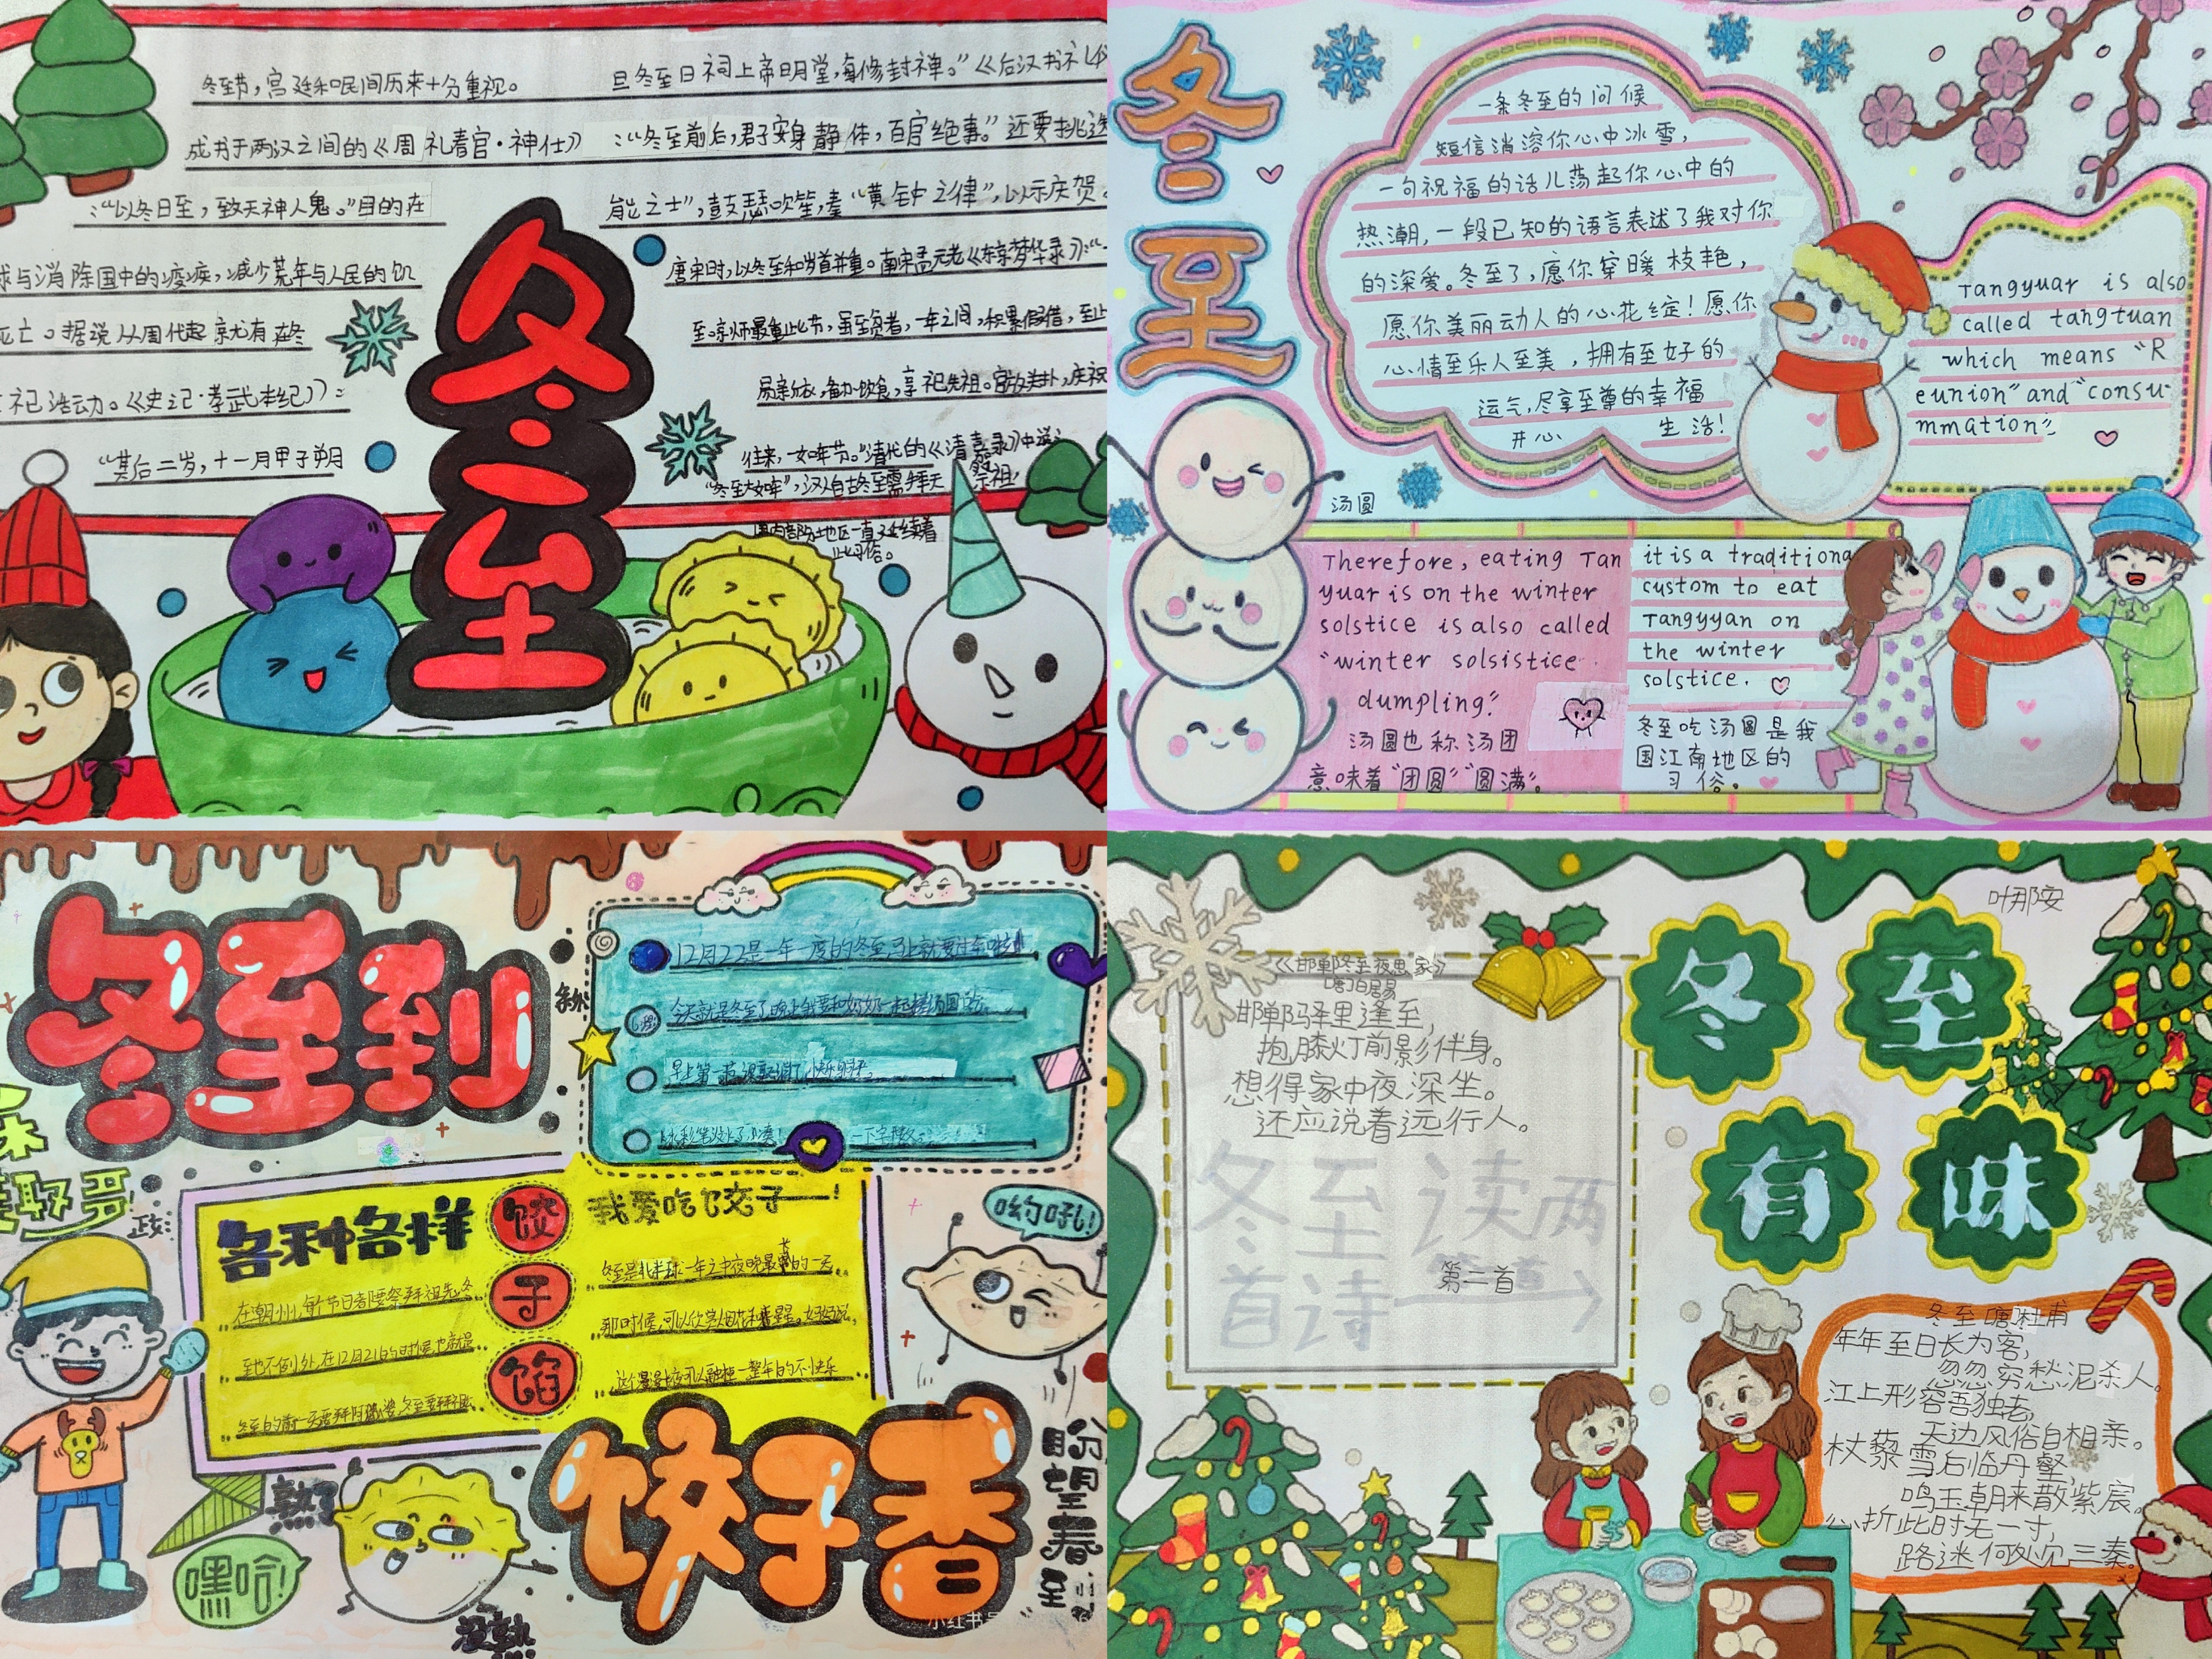 冬至节，宫廷和民间历来十分重视。
成书于两汉之间的《周礼春官·神仕》
：“以冬日至，致天神人鬼。”目的在
球与消除国中的疫疾，减少荒年与人民的饥
死亡。据说从周代起就有在冬
祀活动。《史记·孝武本纪》：
“其后二岁，十一月甲子朔
旦冬至日祠上帝明堂，每修封禅。”《后汉书礼
：“冬至前后，君子安身静体，百官绝事。”还要挑选
能之士”，鼓瑟吹笙，奏“黄钟之律”，以示庆贺。
唐宋时，以冬至和岁首并重。南宋孟元老《东京梦华录》：“
至京师最重此节，虽至贫者，一年之间，积累假借，至
易新衣，备办饮食，享祀先祖。官放关扑，庆祝
往来，一如年节。”清代的《清嘉录》中
“冬至大如年”，汉人自古冬至需拜天祭祖，
国内部分地区一直延续着
此习俗。
冬至
冬至
一条冬至的问候
短信消溶你心中冰雪，
一句祝福的话儿荡起你心中的
热潮，一段已知的语言表述了我对你
的深爱。冬至了，愿你穿暖枝艳，
愿你美丽动人的心花绽！愿你
心情至乐人至美，拥有至好的
运气，尽享至尊的幸福
开心 生活！
Tangyuar is also
called tangtuan
which means “R
eunion” and “consu-
mmation”
汤圆
Therefore, eating Tan
yuar is on the winter
solstice is also called
“winter solsistice
dumpling.”
汤圆也称汤团
意味着“团圆”“圆满”。
it is a traditiona
custom to eat
Tangyyan on
the winter
solstice.
冬至吃汤圆是我
国江南地区的
习俗。
冬至到
12月22是一年一度的冬至马上就要过年啦
今天就是冬至了晚上我要和奶奶一起搓汤圆
各种各样
饺子馅
我爱吃饺子——！
在潮州，每个节日都要祭拜祖先冬
至也不例外，在12月21的时候，也就是
冬至是北半球一年之中夜晚最长的一天
那时候，可以欣赏烟花和
哟吼！
熟了
嘿哈！
没熟
饺子香
盼望春
冬至有味
叶那安
《邯郸冬至夜思家》
唐 白居易
邯郸驿里逢至，
抱膝灯前影伴身。
想得家中夜深坐。
还应说着远行人。
冬至读两
首诗
第二首
冬至 唐 杜甫
年年至日长为客，
忽忽穷愁泥杀人。
江上形容吾独老，
天边风俗自相亲。
杖藜雪后临丹壑，
鸣玉朝来散紫宸。
心折此时无一寸，
路迷何处见三秦。